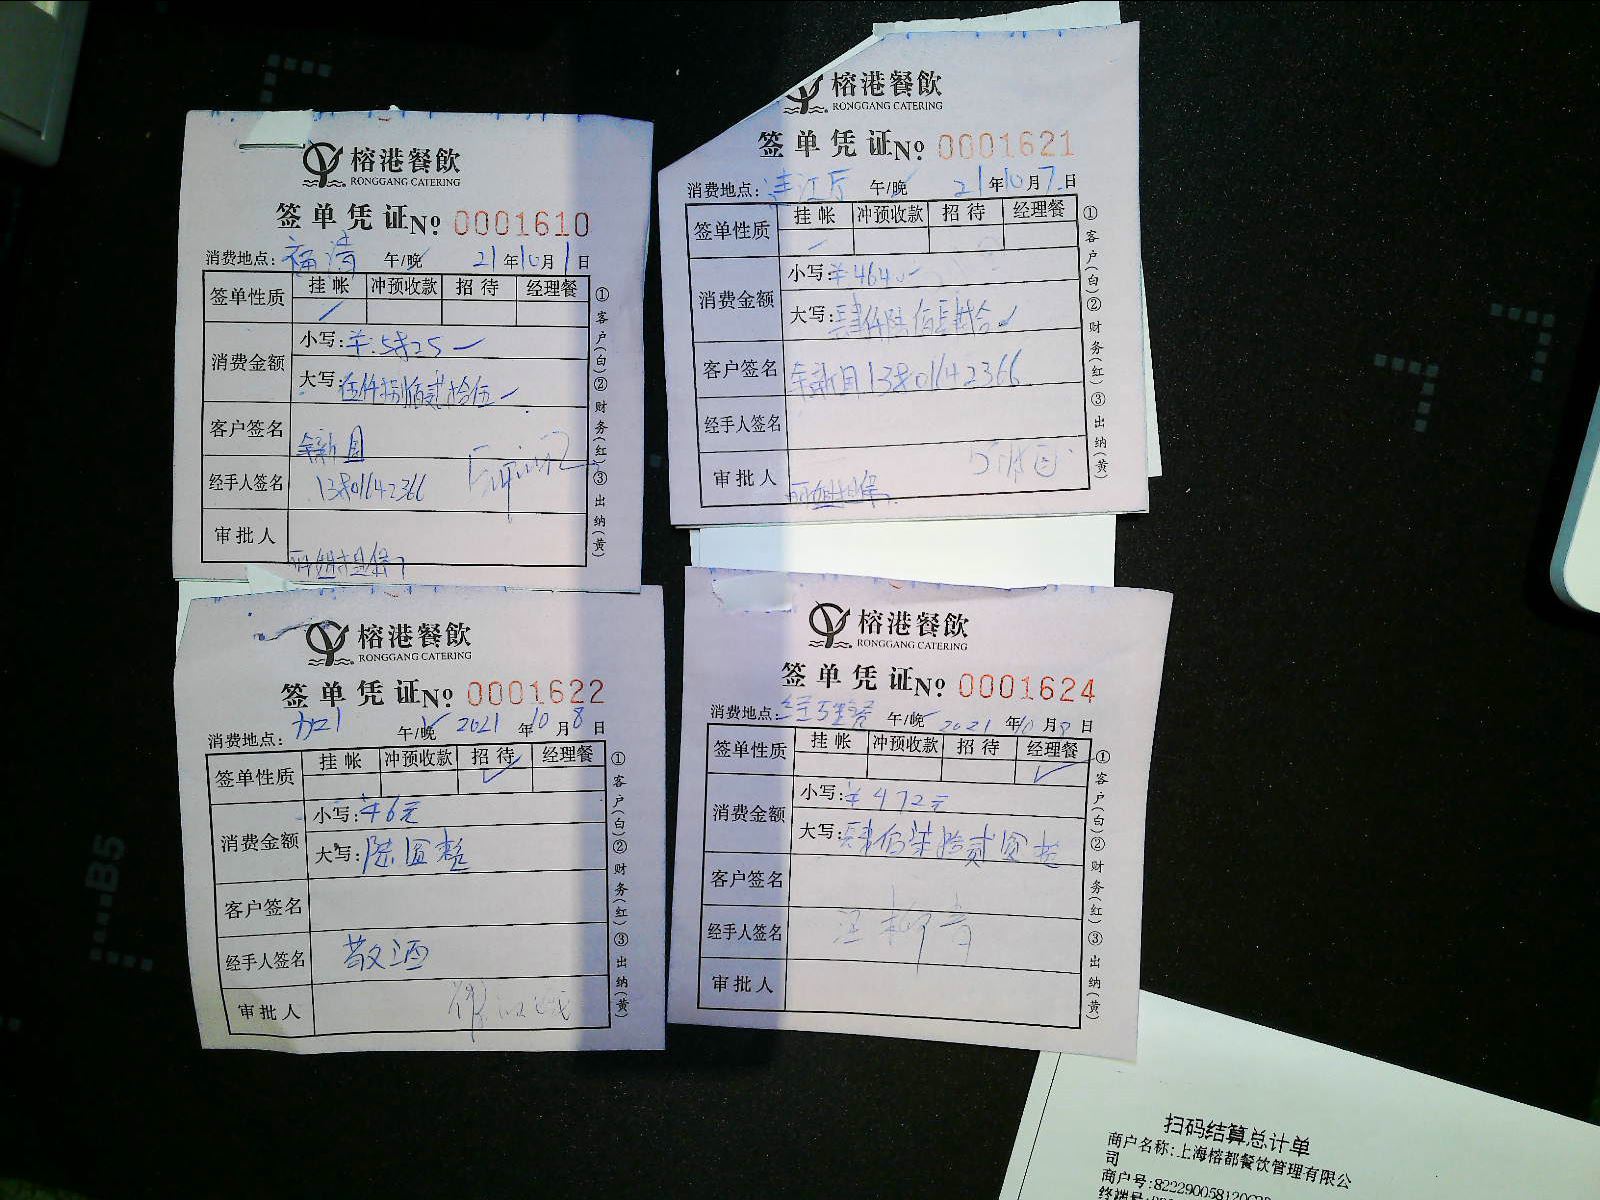 榕港餐飲
RONGGANG CATERING
签单凭证№ 0001610
消费地点: 福清 午/晚 21年10月1日
签单性质 挂帐 冲预收款 招待 经理餐
消费金额
小写:
大写: 伍仟捌佰贰拾伍
客户签名
经手人签名 13801642366
审批人
①客户(白)②财务(红)③出纳(黄)
榕港餐飲
RONGGANG CATERING
签单凭证№ 0001621
消费地点: 连江厅 午/晚 21年10月7日
签单性质 挂帐 冲预收款 招待 经理餐
消费金额
小写: ¥4640
大写:
客户签名 13801642366
经手人签名
审批人
①客户(白)②财务(红)③出纳(黄)
榕港餐飲
RONGGANG CATERING
签单凭证№ 0001622
消费地点: 午/晚 2021年10月8日
签单性质 挂帐 冲预收款 招待 经理餐
消费金额
小写:
大写: 陆圆整
客户签名
经手人签名 敬酒
审批人
①客户(白)②财务(红)③出纳(黄)
榕港餐飲
RONGGANG CATERING
签单凭证№ 0001624
消费地点: 经理餐 午/晚 2021年10月9日
签单性质 挂帐 冲预收款 招待 经理餐
消费金额
小写: ¥472元
大写: 肆佰柒拾贰圆整
客户签名
经手人签名 汪柳青
审批人
①客户(白)②财务(红)③出纳(黄)
扫码结算总计单
商户名称:上海榕都餐饮管理有限公
司
B5